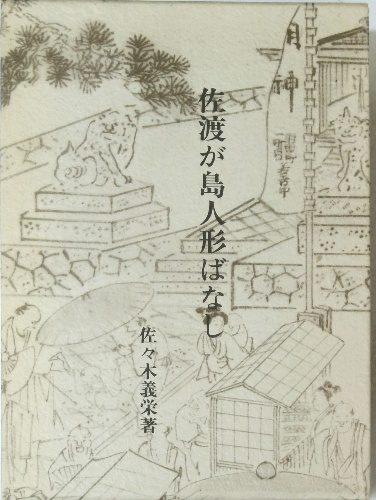 佐渡が島人形ばなし
佐々木義栄著
明神